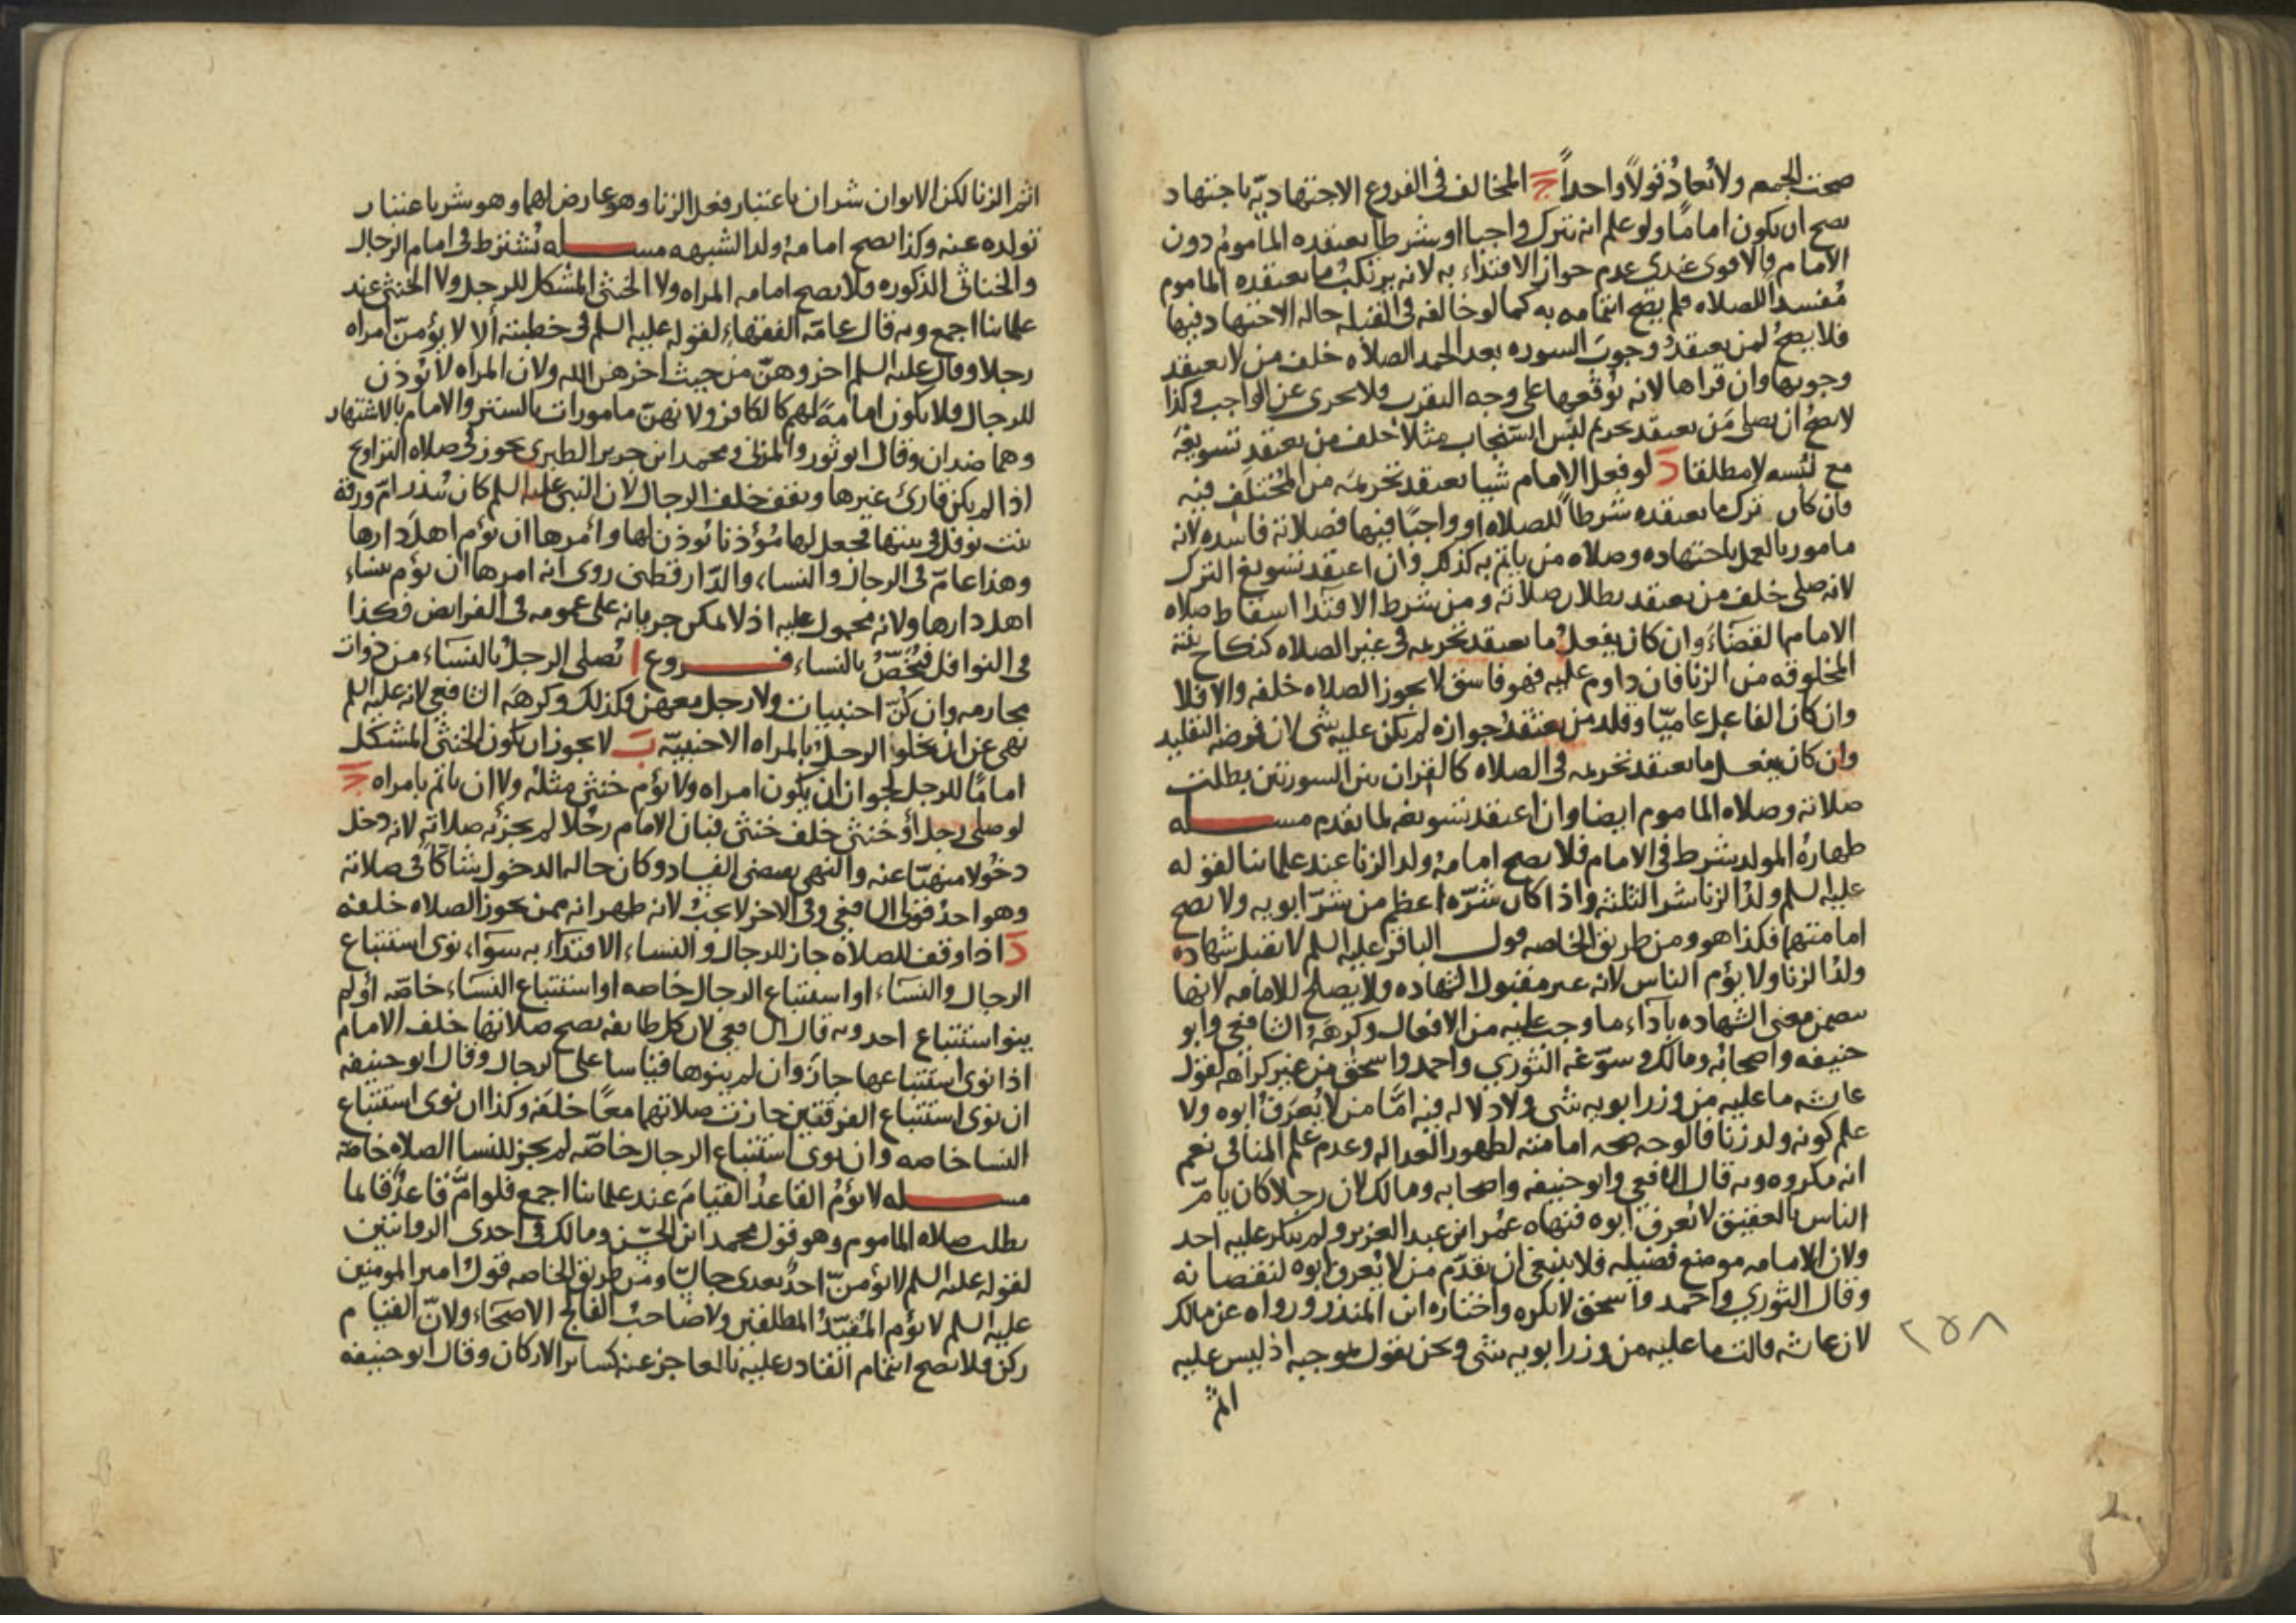 صحت الجمع ولا تعاد قولا واحدا ج المخالف فى الفروع الاجتهاديّة باجتهاد
يصح ان يكون اماما ولو علم انه يترك واجبا او شرطا يعتقده المأموم دون
الامام فالاقوى عندى عدم جواز الاقتداء به لانه يرتكب ما يعتقده الماموم
مفسدا للصلاه فلم يصح ائتمامه به كما لو خالفه فى القبله حاله الاجتهاد فيها
فلا يصح لمن يعتقد وجوب السوره بعد الحمد الصلاه خلف من لا يعتقد
وجوبها وان قراها لانه يوقعها على وجه التقرب فلا يجزى عن الواجب وكذا
لا يصح ان يصلى من يعتقد تحريم لبس السنجاب مثلا خلف من يعتقد تسويغه
مع لبسه لا مطلقا د لو فعل الامام شيا يعتقد تحريمه من المختلف فيه
فان كان ترك ما يعتقده شرطا للصلاه او واجبا فيها فصلاته فاسده لانه
مامور بالعمل باجتهاده وصلاه من ياتم به كذلك وان اعتقد تسويغ الترك
لانه صلى خلف من يعتقد بطلان صلاته ومن شرط الاقتدا اسقاط صلاه
الامام القضاء وان كان يفعل ما يعتقد تحريمه فى غير الصلاه كنكاح بنته
المخلوقه من الزنا فان داوم عليه فهو فاسق لا يجوز الصلاه خلفه والا فلا
وان كان الفاعل عاميا وقلد من يعتقد جوازه لم يكن عليه شى لان فرضه التقليد
وان كان يفعل ما يعتقد تحريمه فى الصلاه كالقران بين السورتين بطلت
صلاته وصلاه الماموم ايضا وان اعتقد تسويغه لما تقدم مسله
طهاره المولد شرط فى الامام فلا يصح امامه ولد الزنا عند علمائنا لقوله
عليه السلم ولد الزنا شر الثلثه واذا كان شرّه اعظم من شرّ ابويه ولا تصح
امامتهما فكذا هو ومن طريق الخاصه قول الباقر عليه السلم لا تقبل شهاده
ولد الزنا ولا يؤم الناس لانه غير مقبول الشهاده ولا يصلح للامامه لانها
تتضمن معنى الشهاده باداء ما وجب عليه من الافعال وكرهه الشافعي وابو
حنيفه واصحابه ومالك وسوّغه الثوري واحمد واسحق من غير كراهه لقول
عائشه ما عليه من وزر ابويه شى ولا دلاله فيه امّا من لا يعرف ابوه ولا
علم كونه ولد زنا فالوجه صحه امامته لظهور العداله وعدم علم المنافى نعم
انه مكروه وبه قال الشافعي وابو حنيفه واصحابه ومالك لان رجلا كان يامّ
الناس بالعقيق لا يعرف ابوه فنهاه عمر ابن عبد العزيز ولم ينكر عليه احد
ولان الامامه موضع فضيله فلا ينبغى ان يقدّم من لا يعرف ابوه لنقصانه
وقال الثوري واحمد واسحق لا يكره واختاره ابن المنذر ورواه عن مالك
لان عائشه قالت ما عليه من وزر ابويه شى ونحن نقول بموجبه اذ ليس عليه
اثم
٢٥٨
اثم الزنا لكن الابوان شران باعتبار فعل الزنا وهو عارض لهما وهو شر باعتبار
تولده عنه وكذا يصح امامه ولد الشبهه مسله يشترط فى امام الرجال
والخناثى الذكوره فلا يصح امامه المراه ولا الخنثى المشكل للرجل ولا الخنثى عند
علمائنا اجمع وبه قال عامّه الفقهاء لقوله عليه السلم فى خطبته ألا لا يؤمنّ امراه
رجلا وقال عليه السلم اخروهنّ من حيث اخرهن الله ولان المراه لا تؤذن
للرجال فلا تكون امامه لهم كالكافر ولانهنّ مامورات بالستر والامام بالاشتهار
وهما ضدان وقال ابو ثور والمزنى ومحمد ابن جرير الطبري يجوز فى صلاه التراويح
اذا لم يكن قارئ غيرها وتقف خلف الرجال لان النبى عليه السلم كان يزور امّ ورقة
بنت نوفل فى بيتها فجعل لها مؤذنا يؤذن لها وأمرها ان تؤم اهل دارها
وهذا عامّ فى الرجال والنساء والدّارقطنى روى انه امرها ان تؤم نساء
اهل دارها ولانه محمول عليه اذ لا يمكن جريانه على عمومه فى الفرايض فكذا
فى النوافل فيخصّ بالنساء فروع ا يصلى الرجل بالنساء من ذوات
محارمه وان كنّ اجنبيات ولا رجل معهن فكذلك وكرهه الشافعي لانه عليه السلم
نهى عن ان يخلوا الرجل بالمراه الاجنبيّه ب لا يجوز ان يكون الخنثى المشكل
اماما للرجل لجواز ان يكون امراه ولا يؤم خنثى مثله ولا ان ياتم بامراه ج
لو صلى رجل أو خنثى خلف خنثى فبان الامام رجلا لم يجزئه صلاته لانه دخل
دخولا منهيّا عنه والنهى يقتضى الفساد وكان حاله الدخول شاكّا فى صلاته
وهو احد قولى الشافعي وفى الاخر لا يجب لانه ظهر انه ممن يجوز الصلاه خلفه
د اذا وقف للصلاه جاز للرجال والنساء الاقتداء به سواء نوى استتباع
الرجال والنساء او استتباع الرجال خاصه او استتباع النساء خاصّه أو لم
ينو استتباع احد وبه قال الشافعي لان كل طايفه تصح صلاتها خلف الامام
اذا نوى استتباعها جاز وان لم ينوها قياسا على الرجال وقال ابو حنيفه
ان نوى استتباع الفرقتين جازت صلاتهما معا خلفه وكذا ان نوى استتباع
النسا خاصه وان نوى استتباع الرجال خاصّه لم يجز للنسا الصلاه خاصّه
مسله لا يؤمّ القاعد القيام عند علمائنا اجمع فلو امّ قاعد قائما
بطلت صلاه الماموم وهو قول محمد ابن الحسن ومالك فى احدى الروايتين
لقوله عليه السلم لا يؤمنّ احد بعدى جالسا ومن طريق الخاصه قول امير المومنين
عليه السلم لا يؤم المقيّد المطلقين ولا صاحب الفالج الاصحاء ولانّ القيام
ركن فلا يصح ائتمام القادر عليه بالعاجز عنه كسائر الاركان وقال ابو حنيفه